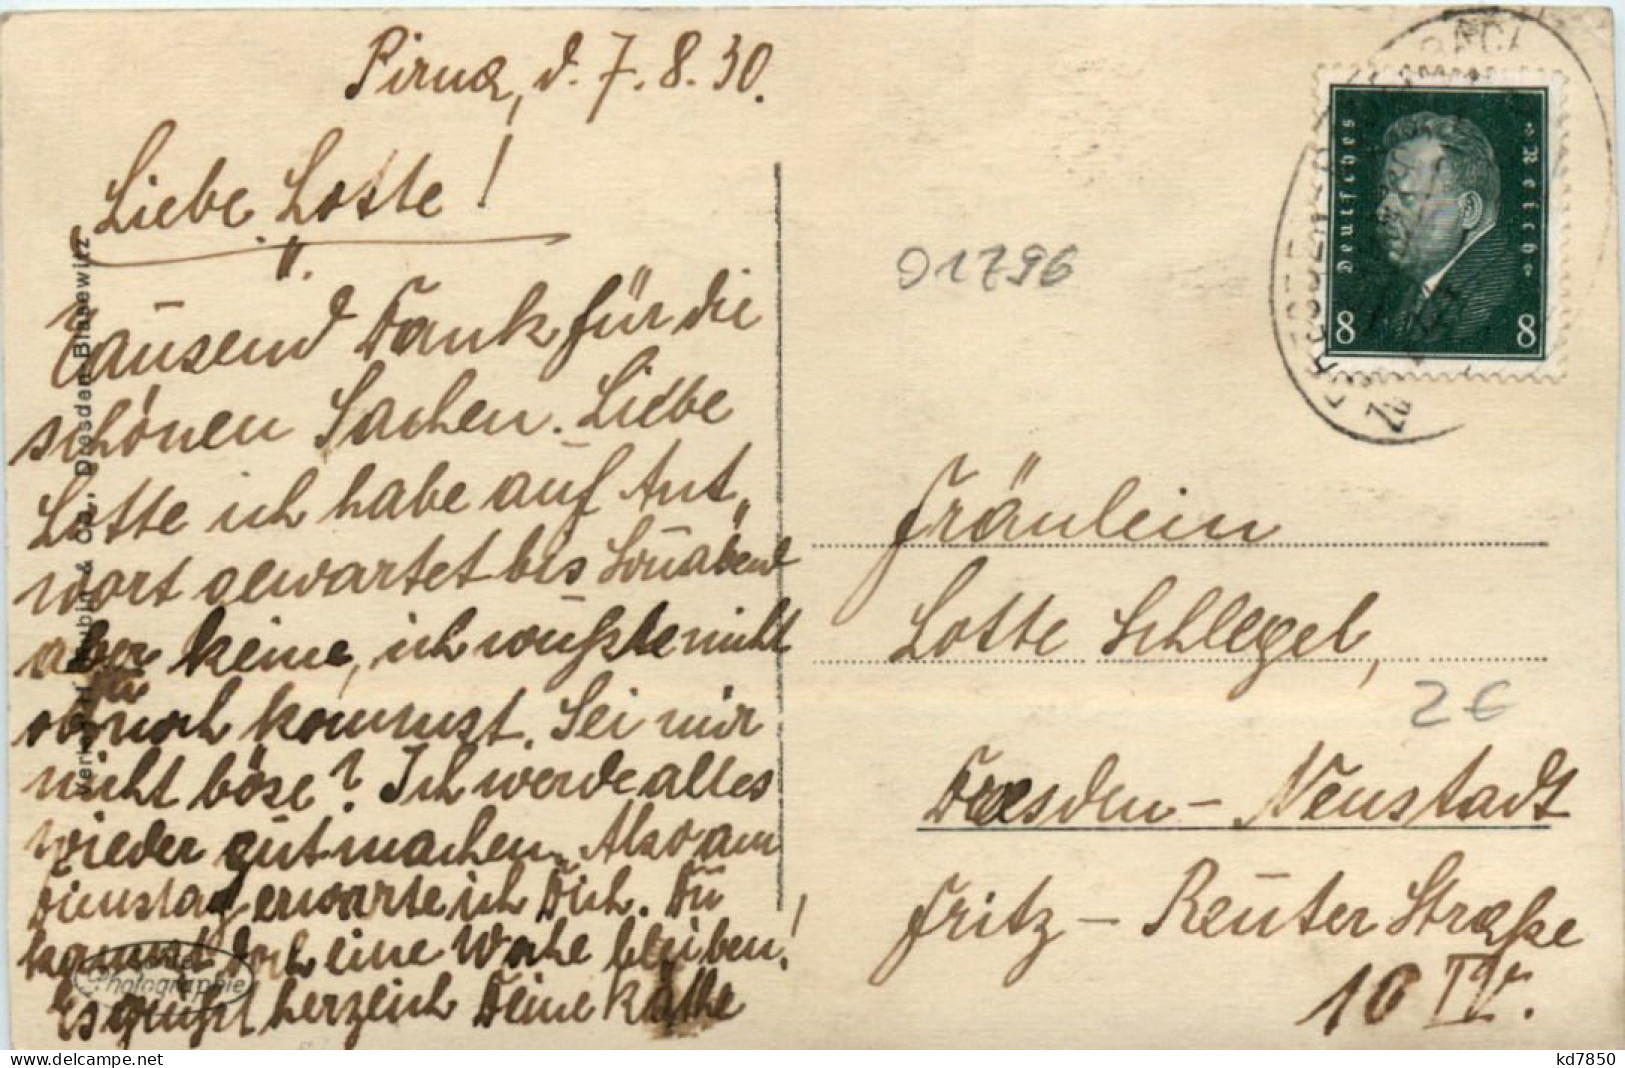 Pirna, d. 7. 8. 30.
Liebe Lotte!
Tausend Dank für die
schönen Sachen. Liebe
Lotte ich habe auf Ant„
wort gewartet bis Sonnabend
aber keine, ich wußte nicht
ob Du noch kommst. Sei mir
nicht böse? Ich werde alles
wieder gutmachen. Also am
Dienstag erwarte ich Dich. Du
kannst doch eine Woche bleiben!
Es grüßt herzlich Deine Käthe
& Co., Dresden-Blasewitz
Photographie
Deutsches Reich
8 8
01796
Fräulein
Lotte Schlegel,
2 €
Dresden-Neustadt
Fritz-Reuter Straße
10 IV.
www.delcampe.net
kd7850